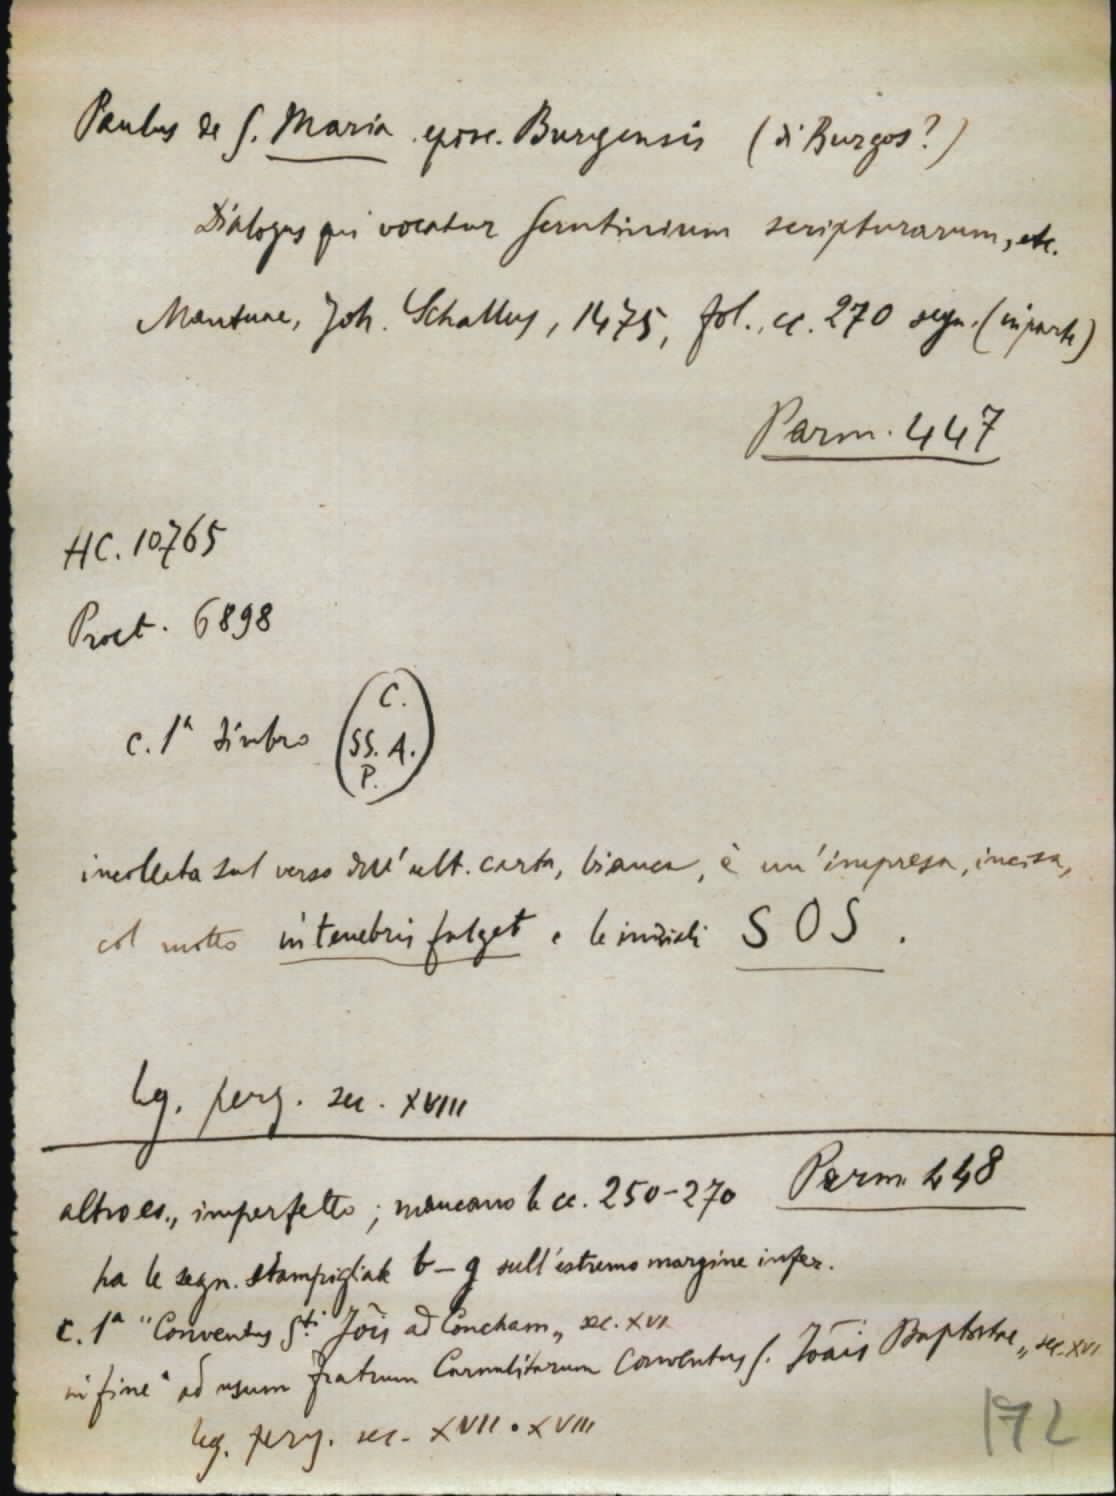 Paulus de S. Maria episc. Burgensis (di Burgos?)
Dialogus qui vocatur Scrutinium scripturarum, etc.
Mantuae, Joh. Schallus, 1475, fol., cc. 270 segn. (in parte)
Parm. 447
HC. 10765
Proct. 6898
c. 1ª timbro
C.
SS. A.
P.
incollata sul verso dell'ult. carta, bianca, è un'impresa, incisa,
col motto in tenebris fulget e le iniziali SOS.
leg. perg. sec. XVIII
altro es., imperfetto; mancano le cc. 250-270 Parm. 448
ha le segn. stampigliate b-g sull'estremo margine infer.
c. 1ª "Conventus S.ti Jois ad Concham„ sec. XVI
in fine "ad usum fratrum Carmelitarum Conventus S. Joais Baptistae„ sec. XVI
leg. perg. sec. XVII-XVIII
172